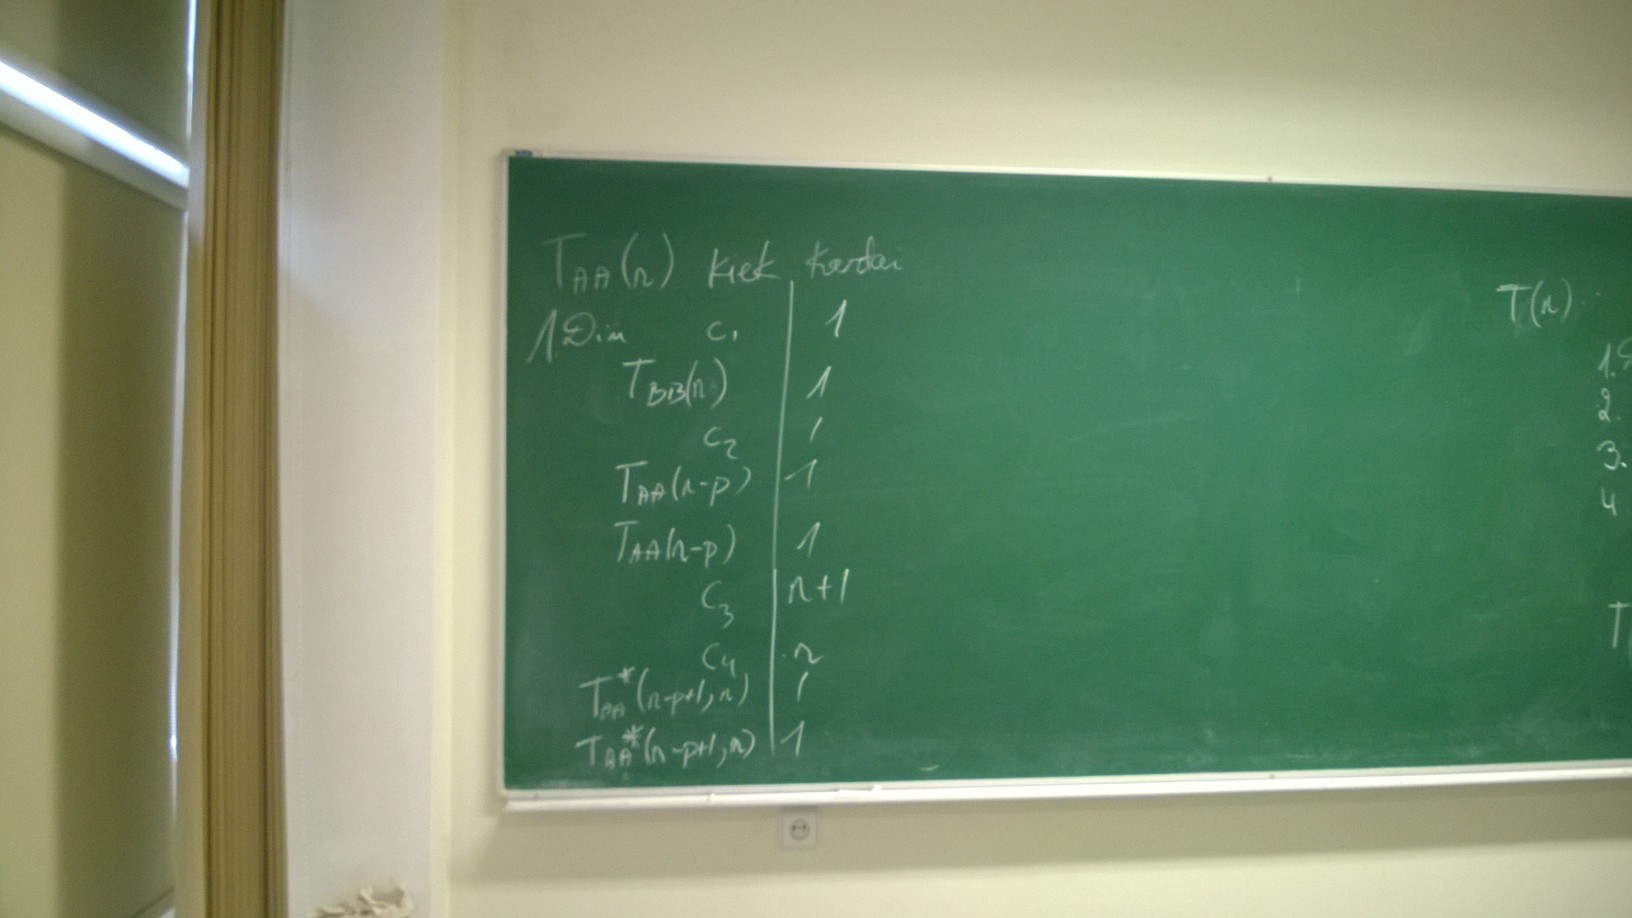 T_AA(n) kiek kartai
1. Dim c₁ | 1
T_BB(n) | 1
c₂ | 1
T_AA(n-p) | 1
T_AA(n-p) | 1
c₃ | n+1
c₄ | n
T_AA*(n-p+1, n) | 1
T_AA*(n-p+1, n) | 1
T(n)
1.
2.
3.
4
T(